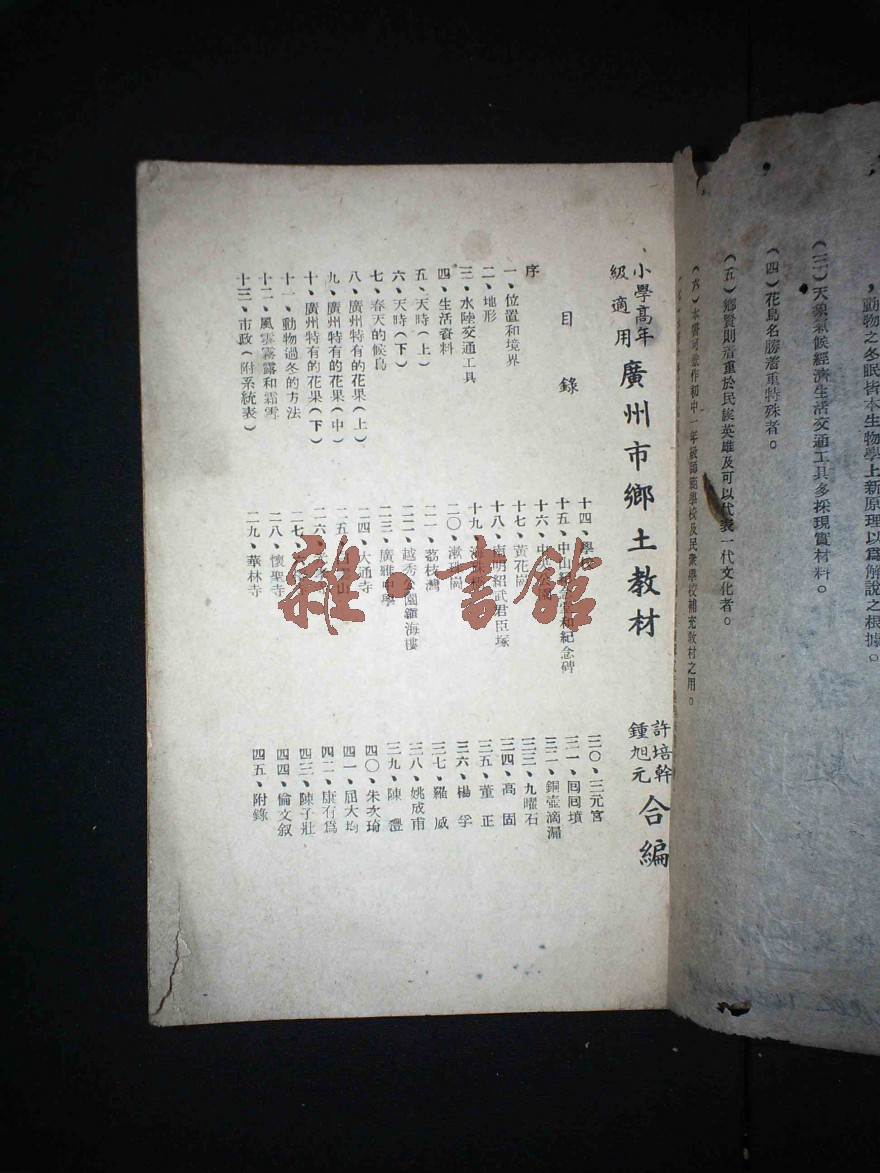 ，動物之冬眠皆本生物學上新原理以爲解說之根據。
（三）天象氣候經濟生活交通工具多採現實材料。
（四）花島名勝蓍重特殊者。
（五）鄉賢則着重於民族英雄及可以代表一代文化者。
（六）本書可兼作初中一年級師範學校及民衆學校補充教材之用。
小學高年級適用 廣州市鄉土教材 許培幹 鍾旭元 合編
目錄
序
一、位置和境界
二、地形
三、水陸交通工具
四、生活資料
五、天時（上）
六、天時（下）
七、春天的候鳥
八、廣州特有的花果（上）
九、廣州特有的花果（中）
十、廣州特有的花果（下）
十一、動物過冬的方法
十二、風雲霧露和霜雪
十三、市政（附系統表）
十四、學校
十五、中山紀念堂和紀念碑
十六、中央公園
十七、黃花崗
十八、南明紹武君臣塚
十九、海珠橋
二〇、漱珠崗
二一、荔枝灣
二二、越秀公園鎮海樓
二三、廣雅中學
二四、大通寺
二五、山
二六、
二七、
二八、懷聖寺
二九、華林寺
三〇、三元宮
三一、回回墳
三二、銅壺滴漏
三三、九曜石
三四、高固
三五、董正
三六、楊孚
三七、羅威
三八、姚成甫
三九、陳豐
四〇、朱次琦
四一、屈大均
四二、康有爲
四三、陳子壯
四四、倫文叙
四五、附錄
雜·書館